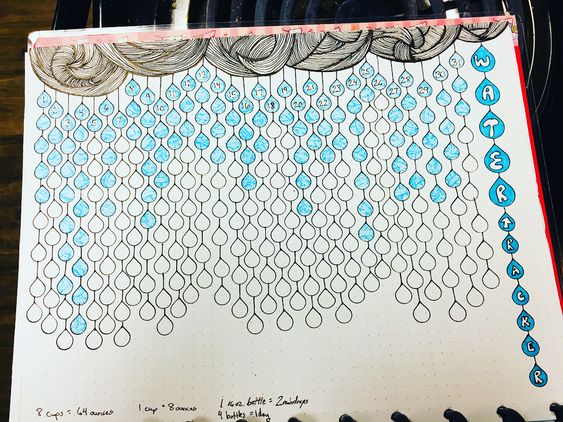 1 2 3 4 5 6 7 8 9 10 11 12 13 14 15 16 17 18 19 20 21 22 23 24 25 26 27 28 29 30 31
WATER TRACKER
8 cups = 64 ounces
1 cup = 8 ounces
1 16oz. bottle = 2 raindrops
4 bottles = 1 day